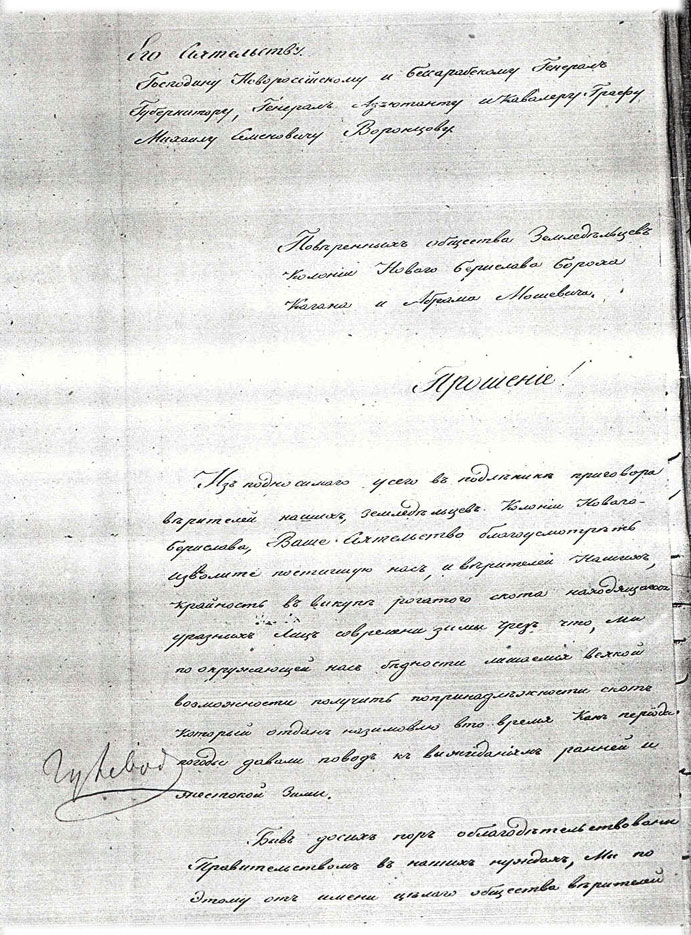 Его Сіятельству.
Господину Новоросійскому и Бессарабскому Генералъ
Губернитору, Генералъ Адъютанту и Кавалеру Графу
Михаилу Семеновичу Воронцову.
Повѣренныхъ общества Земледѣльцевъ
Колоніи Нового Берислава Бороха
Кагана и Абрама Мошевича.
Прошеніе!
Изъ подносимого усего въ подлѣникѣ приговора
вѣрителей нашихъ, земледѣльцевъ Колоніи Нового-
берислава, Ваше Сіятельство благоусмотрѣть
изволите постигшую насъ, и вѣрителей Нашихъ,
крайность въ викупѣ рогатого скота находящагося
уразныхъ Лицъ современи зимы чрезъ что, Мы
по окружающей насъ бѣдности лишаемся всякой
возможности получить попринадлѣжности скотъ
который отданъ назимовлю вто время Какъ періода
погоды давали поводъ къ выжиданіямъ ранней и
жестокой Зими.
Бивъ досихъ поръ облагодѣтельствовани
Правительствомъ въ нашихъ нуждахъ, Мы по
Этому отъ имени цѣлаго общества вѣрителей